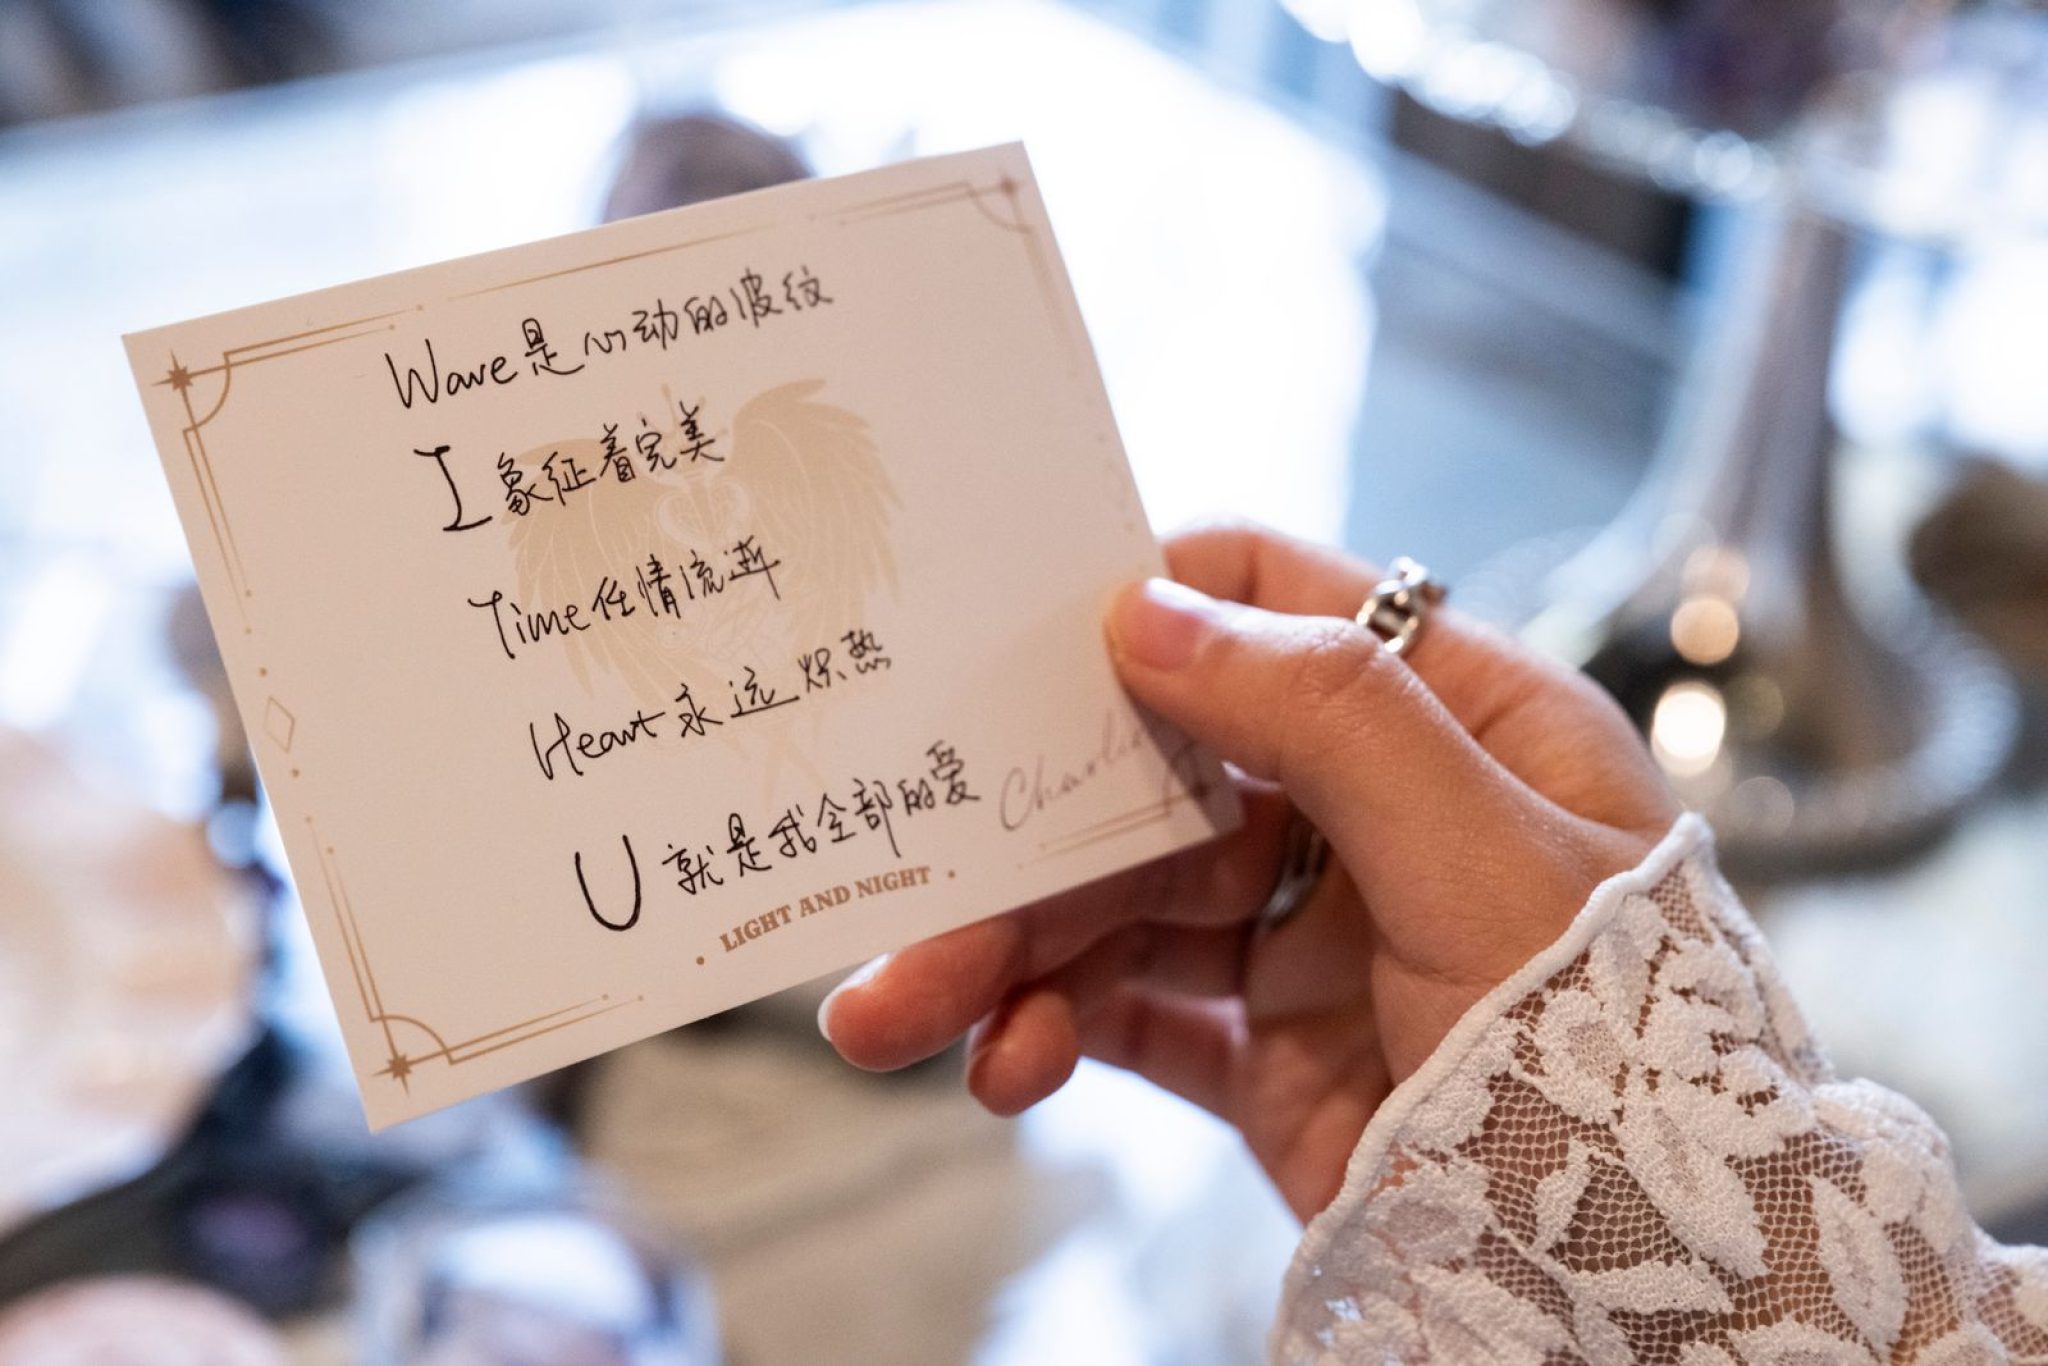 Wave是心动的波纹
I象征着完美
Time任情流逝
Heart永远炽热
U就是我全部的爱
LIGHT AND NIGHT